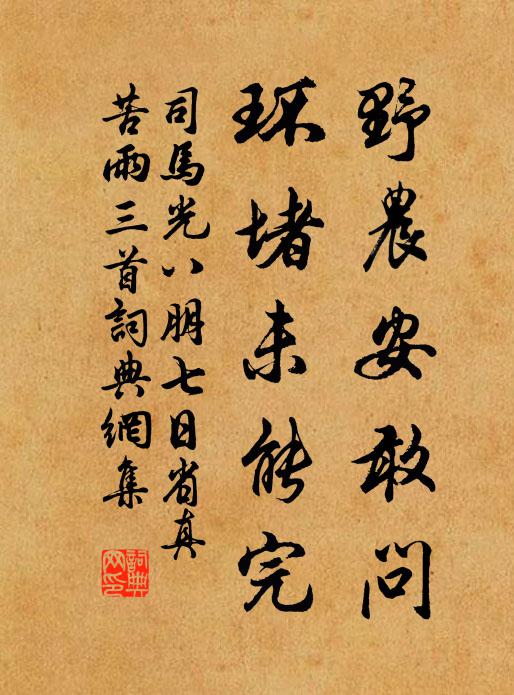 野農安敢問
环堵未能完
司馬光八朋七日省真
苦雨三首詞典網集
詞典
网印